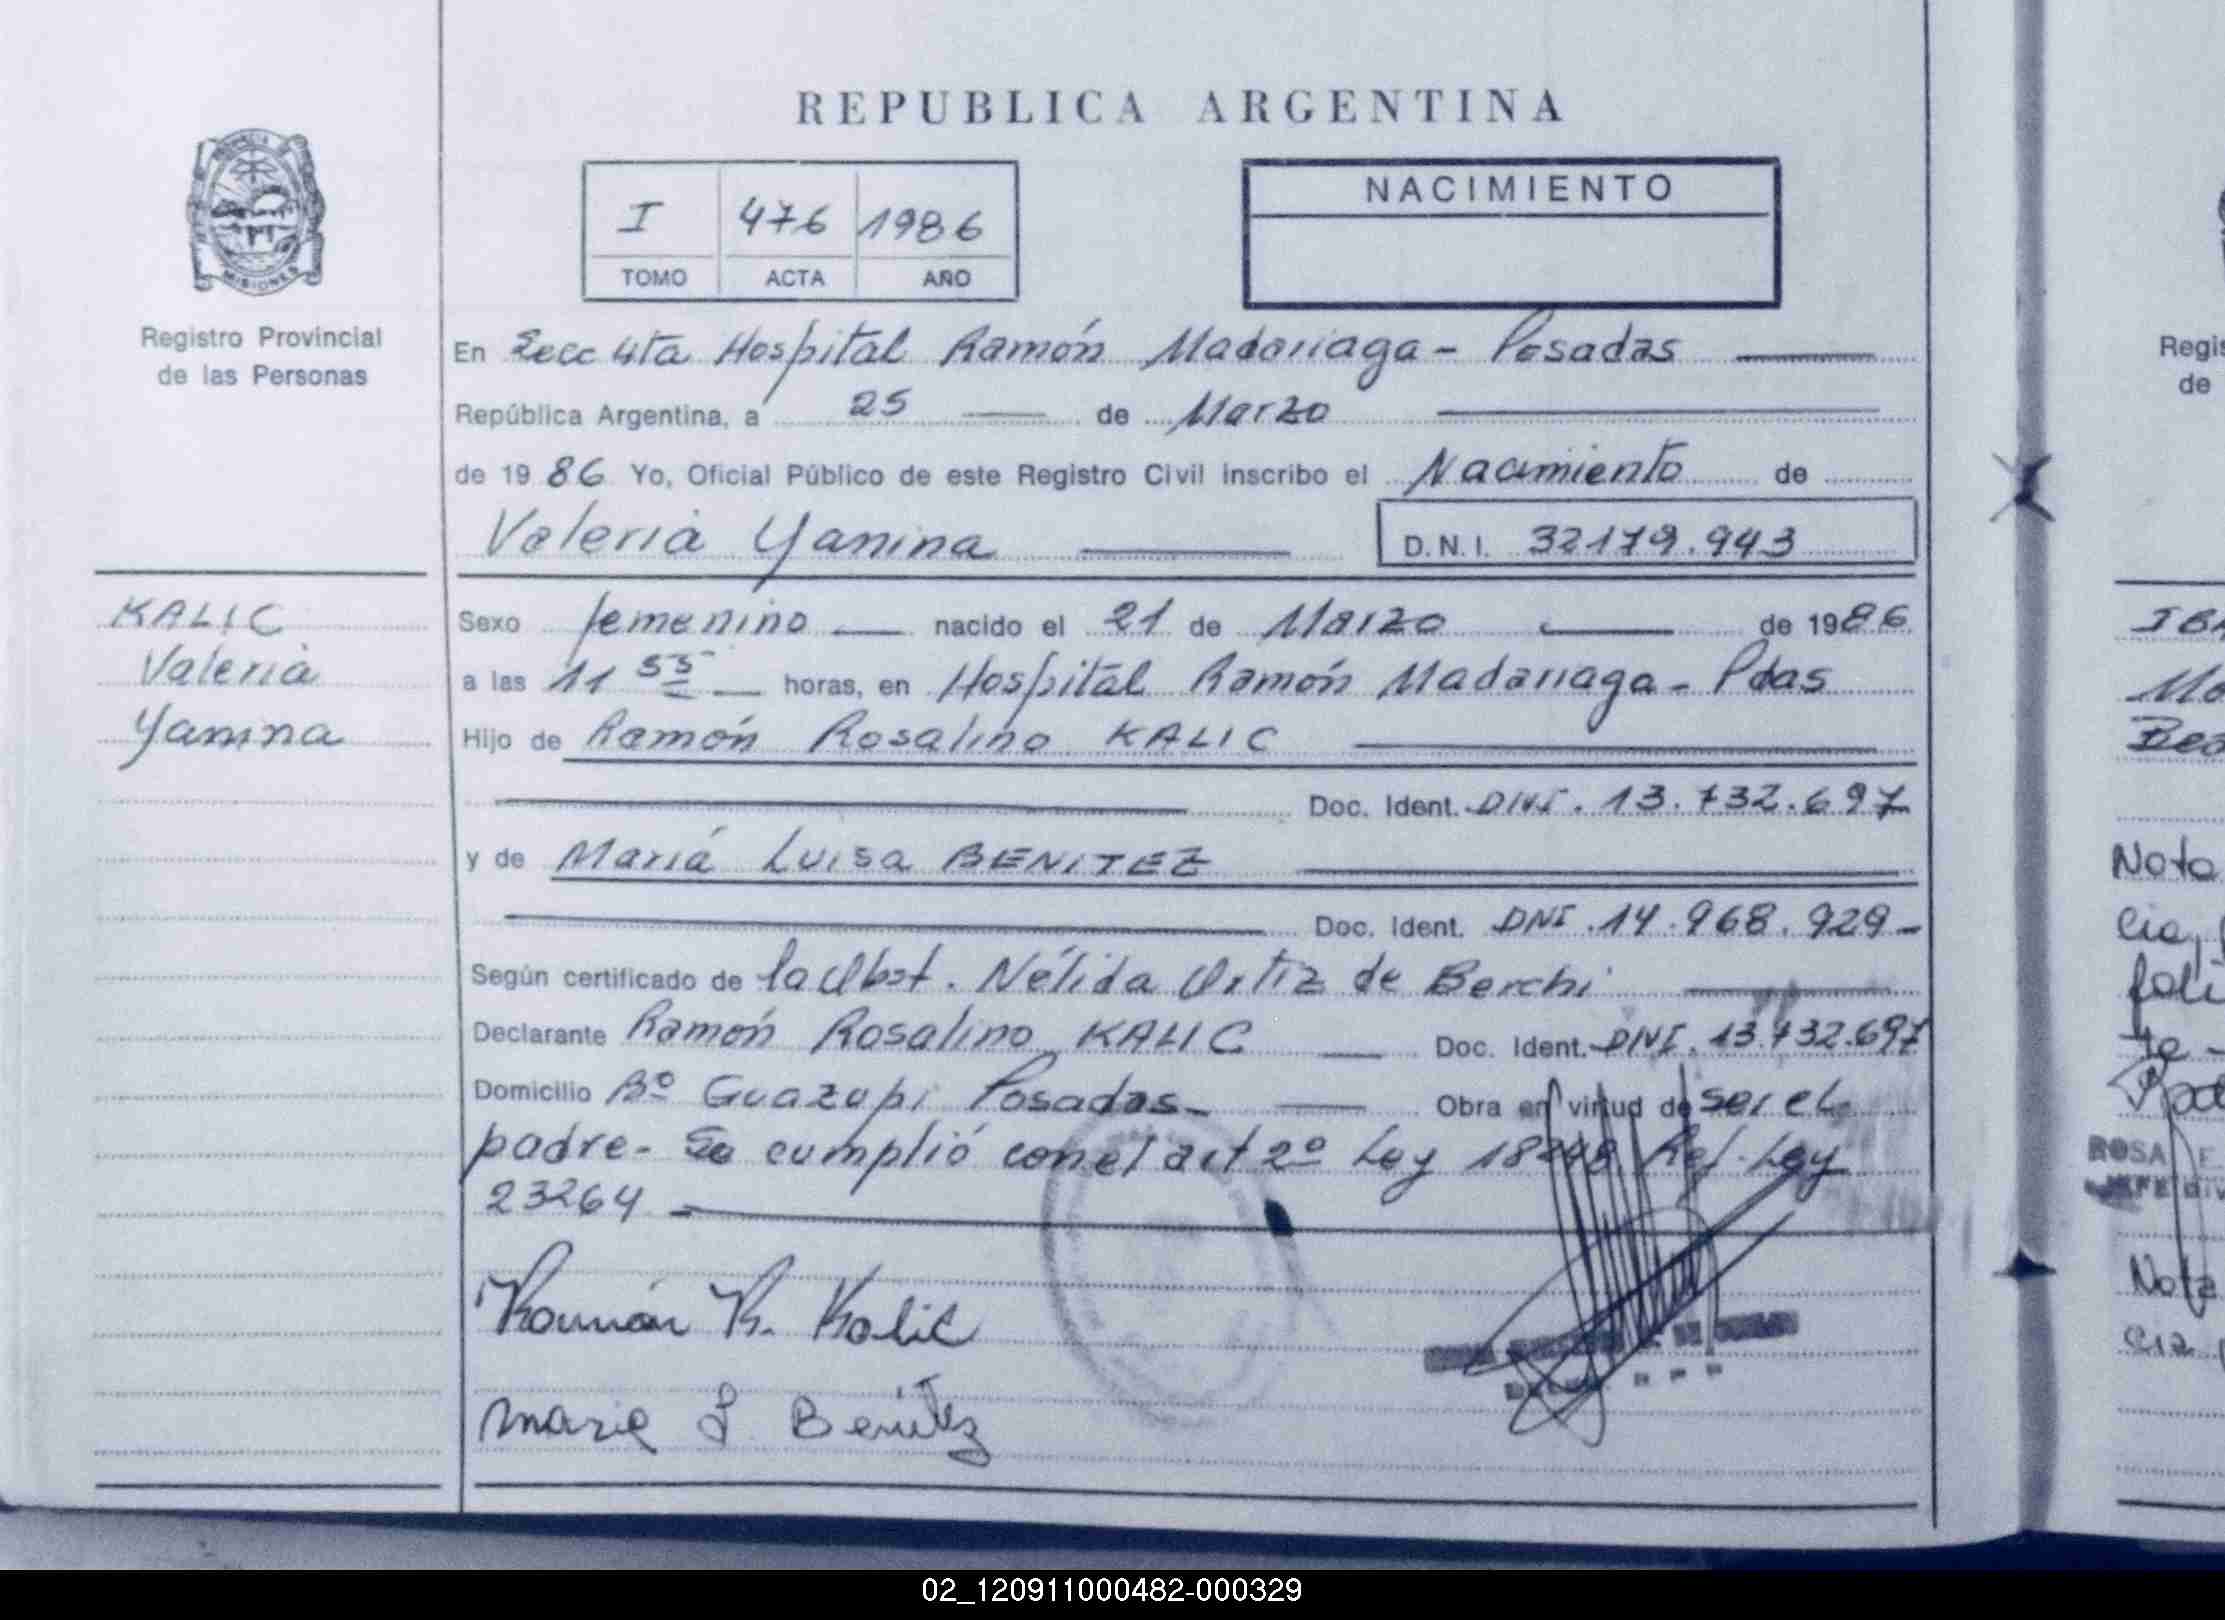 REPUBLICA ARGENTINA
PROVINCIA DE
MISIONES
Registro Provincial
de las Personas
I 476 1986
TOMO ACTA AÑO
NACIMIENTO
En Secc 4ta Hospital Ramón Madariaga - Posadas
República Argentina, a 25 de Marzo
de 1986 Yo, Oficial Público de este Registro Civil inscribo el Nacimiento de
Valeria Yanina D.N.I. 32179.943
KALIC
Valeria
Yanina
Sexo femenino nacido el 21 de Marzo de 1986
a las 11 55 horas, en Hospital Ramón Madariaga - Pdas
Hijo de Ramón Rosalino KALIC
Doc. Ident. DNI. 13.732.697
y de María Luisa BENITEZ
Doc. Ident. DNI.14.968.929-
Según certificado de la Obst. Nélida Ortiz de Berchi
Declarante Ramón Rosalino KALIC Doc. Ident. DNI. 13.732.697
Domicilio Bº Guazupi Posadas- Obra en virtud de ser el
padre- Se cumplió con el art 2º Ley 18248 Ref. Ley
23264
Ramón R. Kalic
Maria L. Benitez
Regis
de
Nota
cia,
ROSA E
JEFE
Nota
cia
02_120911000482-000329